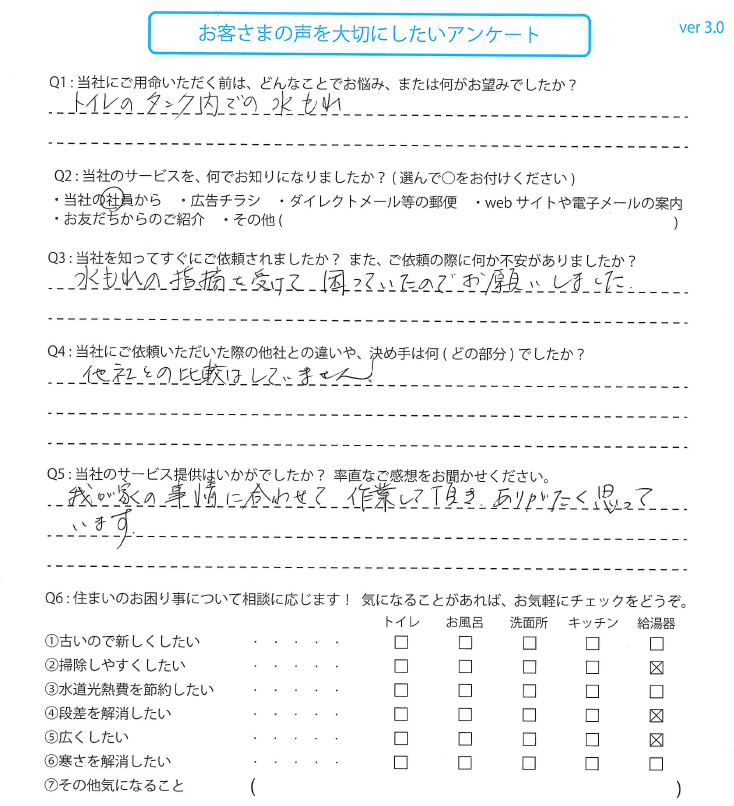 お客さまの声を大切にしたいアンケート
ver 3.0
Q1 : 当社にご用命いただく前は、どんなことでお悩み、または何がお望みでしたか？
トイレのタンク内での水もれ
Q2 : 当社のサービスを、何でお知りになりましたか？ ( 選んで○をお付けください )
・当社の社員から ・広告チラシ ・ダイレクトメール等の郵便 ・web サイトや電子メールの案内
・お友だちからのご紹介 ・その他 ( )
Q3 : 当社を知ってすぐにご依頼されましたか？ また、ご依頼の際に何か不安がありましたか？
水もれの指摘を受けて 困っていたのでお願いしました.
Q4 : 当社にご依頼いただいた際の他社との違いや、決め手は何 ( どの部分 ) でしたか？
他社との比較はしていません!
Q5 : 当社のサービス提供はいかがでしたか？ 率直なご感想をお聞かせください。
我が家の事情に合わせて 作業して頂き、ありがたく思って
います.
Q6 : 住まいのお困り事について相談に応じます！ 気になることがあれば、お気軽にチェックをどうぞ。
トイレ お風呂 洗面所 キッチン 給湯器
①古いので新しくしたい ・・・・・ □ □ □ □ □
②掃除しやすくしたい ・・・・・ □ □ □ □ ☒
③水道光熱費を節約したい ・・・・・ □ □ □ □ □
④段差を解消したい ・・・・・ □ □ □ □ ☒
⑤広くしたい ・・・・・ □ □ □ □ ☒
⑥寒さを解消したい ・・・・・ □ □ □ □ □
⑦その他気になること ( )